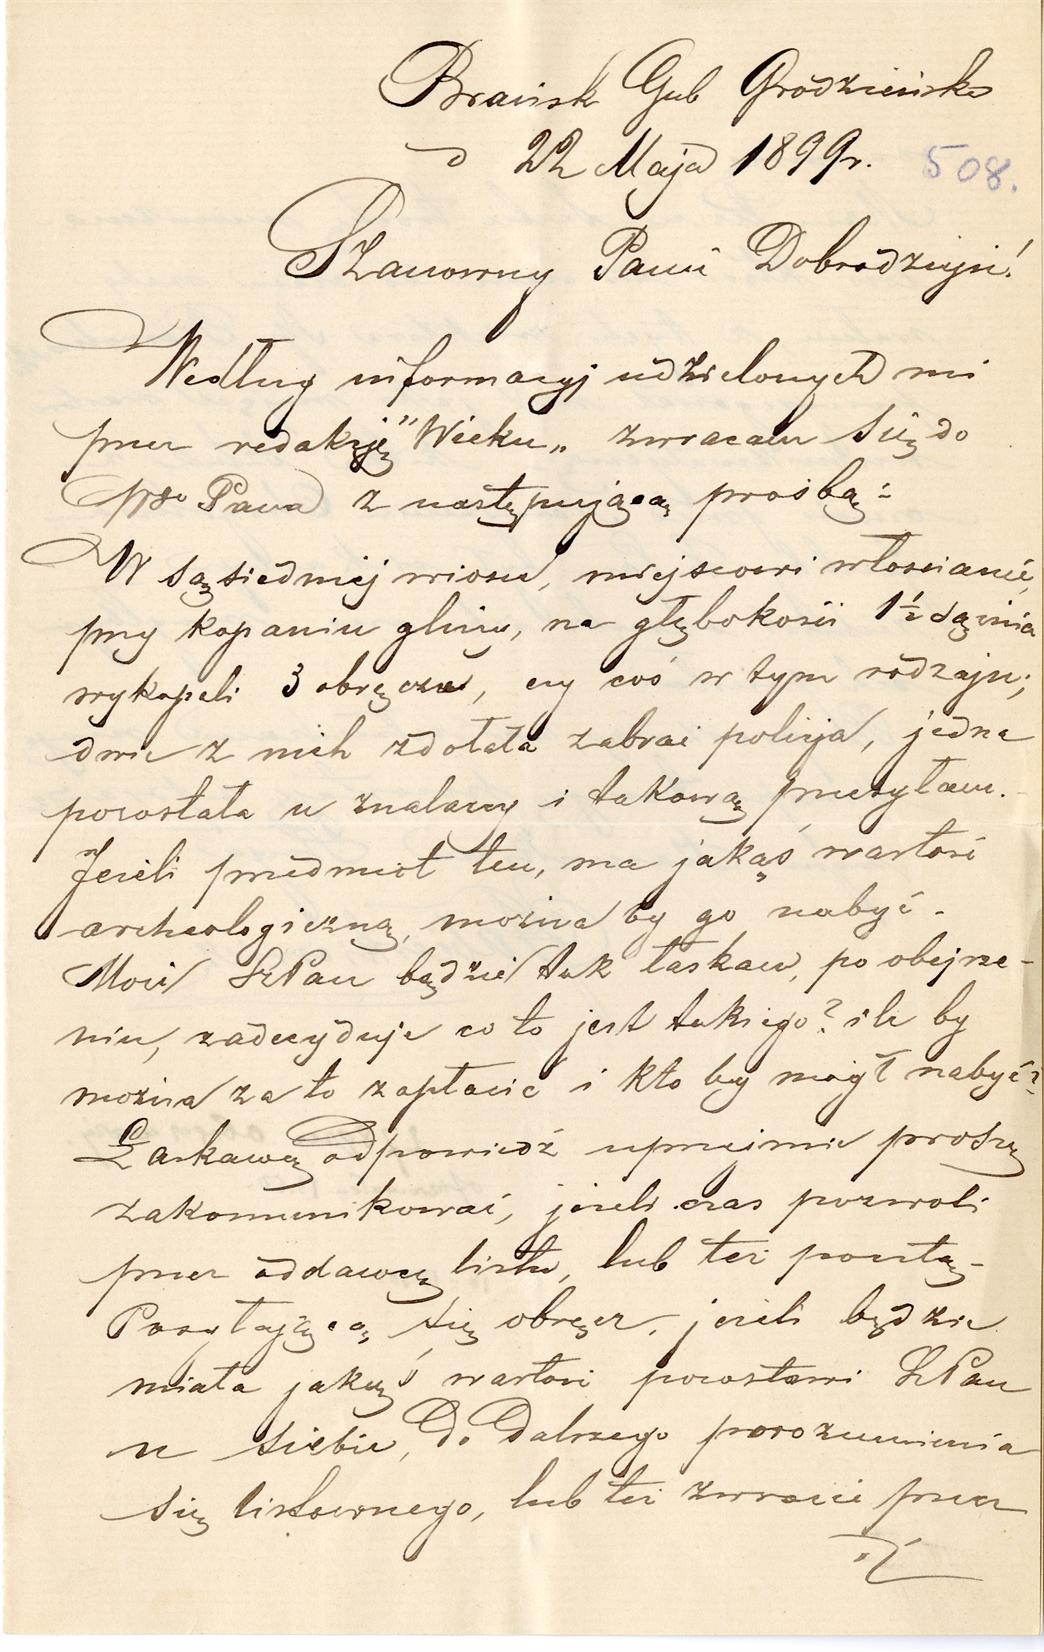 Brańsk Gub Grodzieńska
d 22 Maja 1899r. 508.
Szanowny Panie Dobrodzieju!
Według informacyj udzielonych mi
przez redakcję "Wieku„ zwracam się do
WPo Pana z następującą prośbą:
W sąsiedniej wiosce, miejscowi włościanie,
przy kopaniu gliny, na głębokości 1½ sążnia
wykopali 3 obręcze, czy coś w tym rodzaju;
dwie z nich zdołała zabrać policja, jedna
pozostała u znalazcy i takową przesyłam.
Jeżeli przedmiot ten, ma jakąś wartość
archeologiczną, można by go nabyć.
Może SzPan będzie tak łaskaw, po obejrze-
niu, zadecyduje co to jest takiego? ile by
można za to zapłacić i kto by mógł nabyć?
Łaskawą odpowiedź uprzejmie proszę
zakomunikować, jeżeli czas pozwoli
przez oddawcę listu, lub też pocztą.
Posyłającą się obręcz, jeżeli będzie
miała jakąś wartość pozostawi SzPan
u siebie, do dalszego porozumienia
się listownego, lub też zwrócić przez